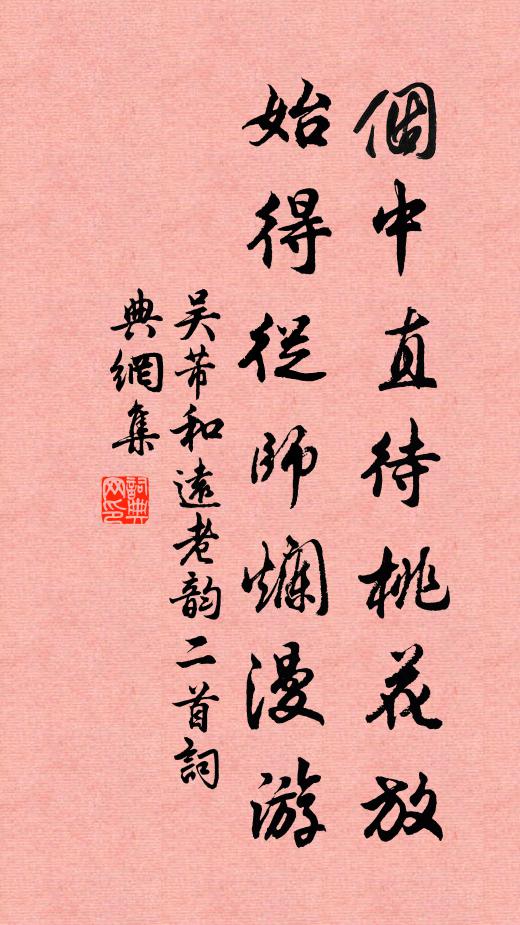 個中直待桃花放
始得從師爛漫游
吴芾和遠老韵二首詞
典網集
詞典
网印